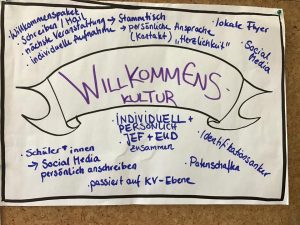 · Willkommenspaket
· Schreiben / Mail
· nächste Veranstaltung → Stammtisch
· individuelle Aufnahme → persönliche Ansprache
(Kontakt) „Herzlichkeit"
· lokale Flyer
· Social
Media
WILLKOMMENS-
KULTUR
· INDIVIDUELL +
PERSÖNLICH
· JEF + EUD
zusammen
· Schüler*innen
→ Social Media
persönlich anschreiben
· passiert auf KV-Ebene
· Identifikationsanker
· Patenschaften